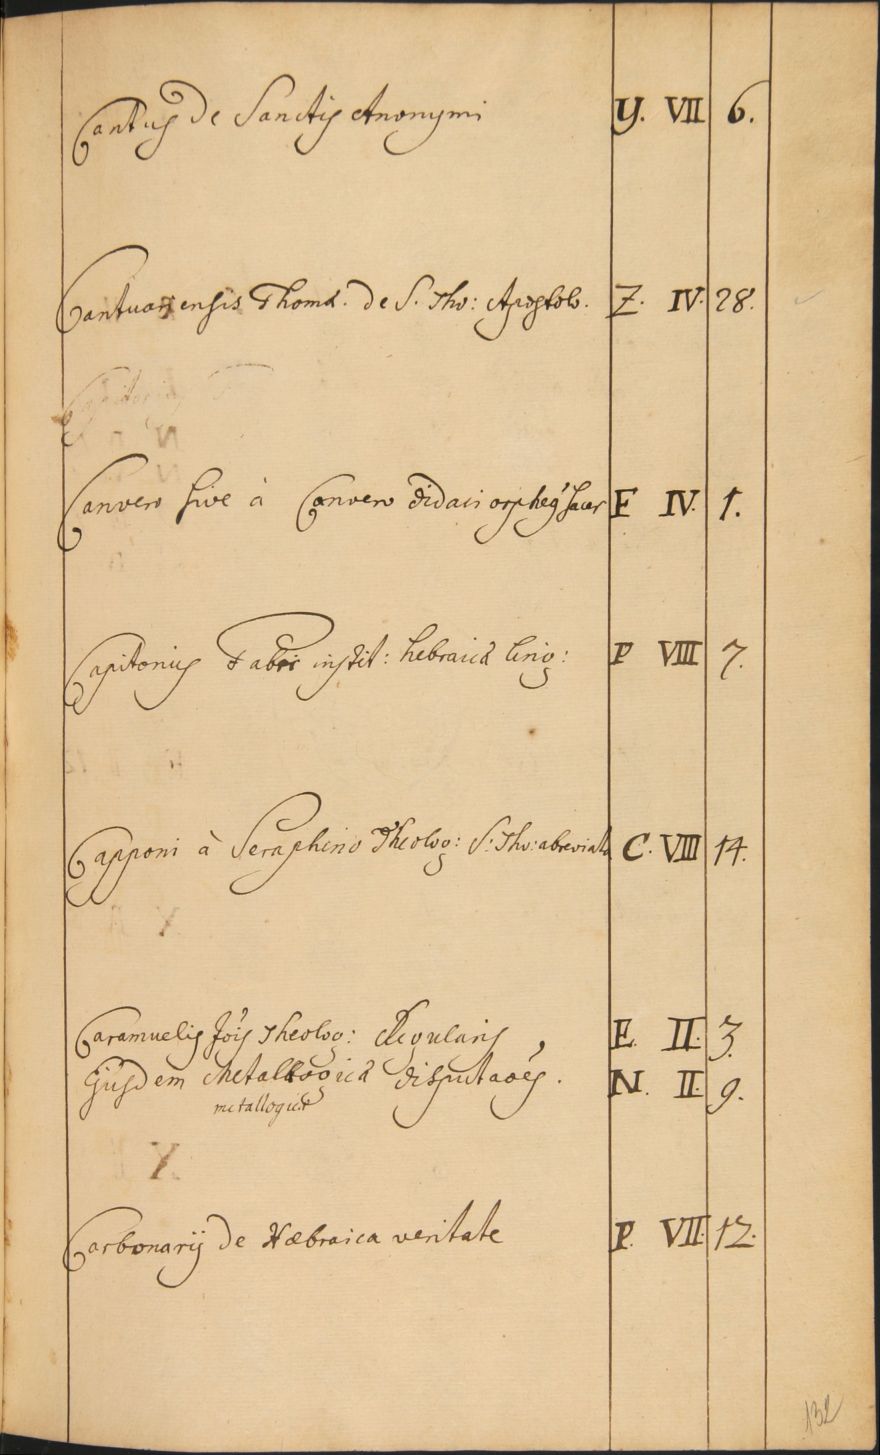 Cantus de Sanctis Anonymi Y. VII 6.
Cantuariensis Thomæ. de S. Tho: Apostolo. Z. IV. 28.
Canvero sive à Convero Didaci orpheus sacer F IV. 1.
Capitonius Fabri instit: hebraicæ ling: P VIII 7.
Capponi à Seraphino Theolog: S. Tho: abreviata C. VIII 14.
Caramuelis Jois Theolog: Regularis, E. II. 3.
Ejusdem Metallogicæ disputaoes. N. II. 9.
metallogicæ
Carbonarij de Hæbraica veritate P. VII. 12.
132